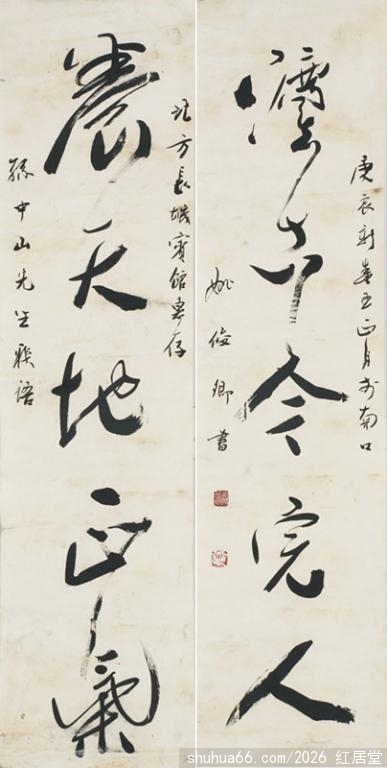 庚辰新春王正月於南口
灋古今完人
姚俊卿書
北方長城賓館惠存
養天地正氣
孫中山先生聯語
shuhua66.com/2026 红居堂